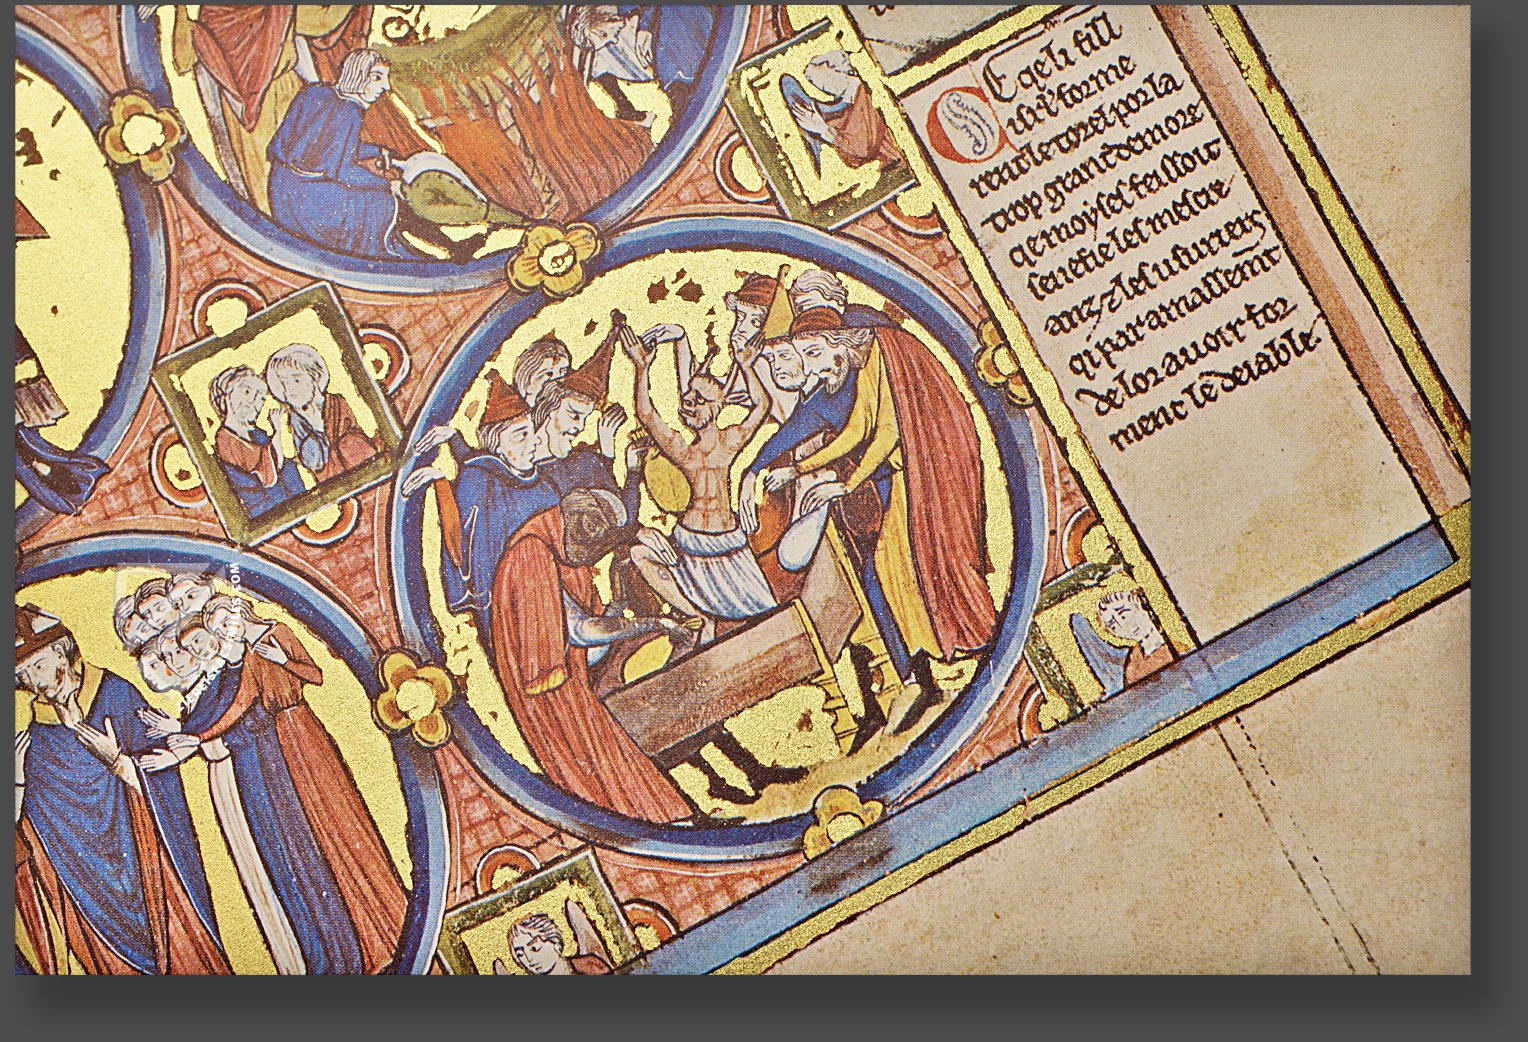 CE qe li fill
isrl forme
rent le torel por la
trop grant demore
qe moyses
senefie les mescre
anz ⁊ les usuriers
qi par amassement
de lor auoir for
ment le deiable.